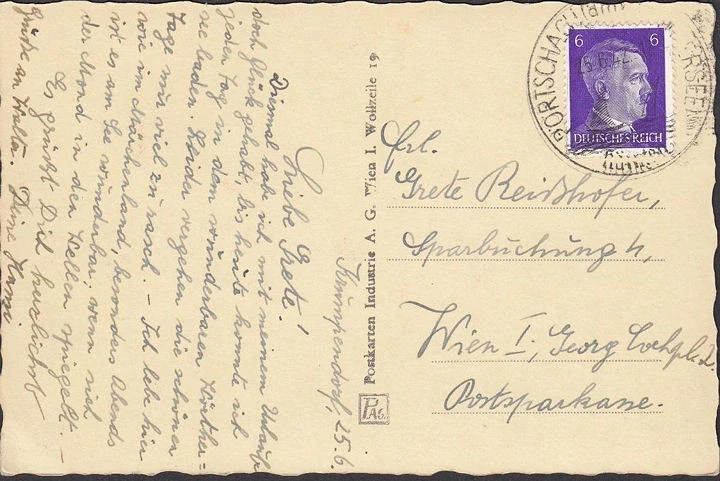 Krumpendorf, 25.6.
Liebe Grete!
Diesmal habe ich mit meinem Urlaub
doch Glück gehabt, bis heute konnte ich
jeden Tag in dem wunderbaren Wörther-
see baden. Leider vergehen die schönen
Tage nur viel zu rasch. - Ich lebe hier
wie im Märchenland, besonders Abends
ist es am See wunderbar, wenn sich
der Mond in den Wellen spiegelt. -
Es grüßt Dich herzlichst
Deine Hansi
Grüße an
Postkarten Industrie A. G. Wien I. Wollzeile 19
PAG.
6 6
DEUTSCHES REICH
PÖRTSCHACH
25.6.42
Frl.
Grete Reißhofer,
Sparbuchung 4,
Wien I., Georg Cochpl. 2
Postsparkasse.